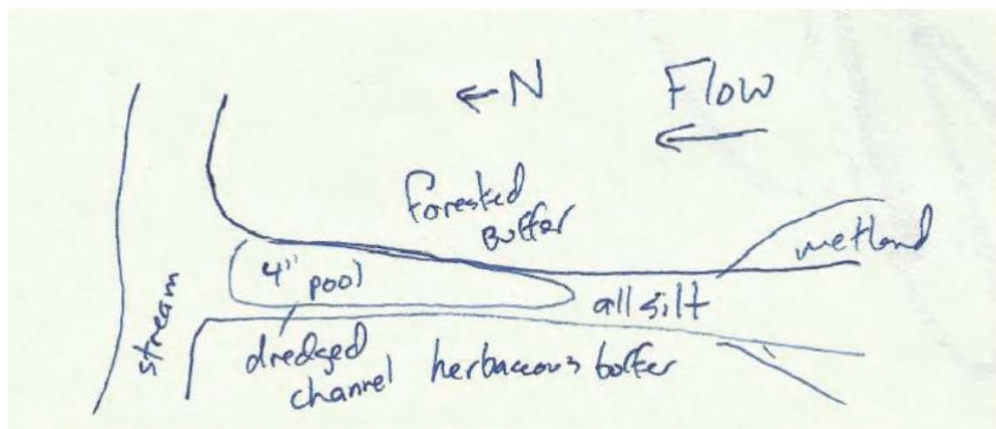 ← N
Flow
←
Forested
Buffer
wetland
4" pool
all silt
stream
dredged
channel
herbaceous buffer